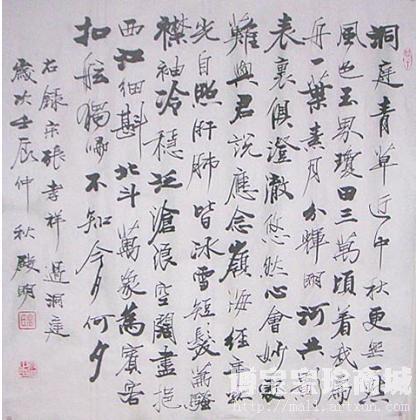 洞庭青草近中秋更無一點
風色玉界瓊田三萬頃着我扁
舟一葉素月分輝明河共影
表裏俱澄澈悠然心會妙處
難與君說應念嶺海經年孤
光自照肝肺皆冰雪短髮蕭騷
襟袖冷穩泛滄浪空闊盡挹
西江細斟北斗萬象為賓客
扣舷獨嘯不知今夕何夕
右錄宋張孝祥過洞庭
歲次壬辰仲秋殿明
商城
http://mall.artxun.com